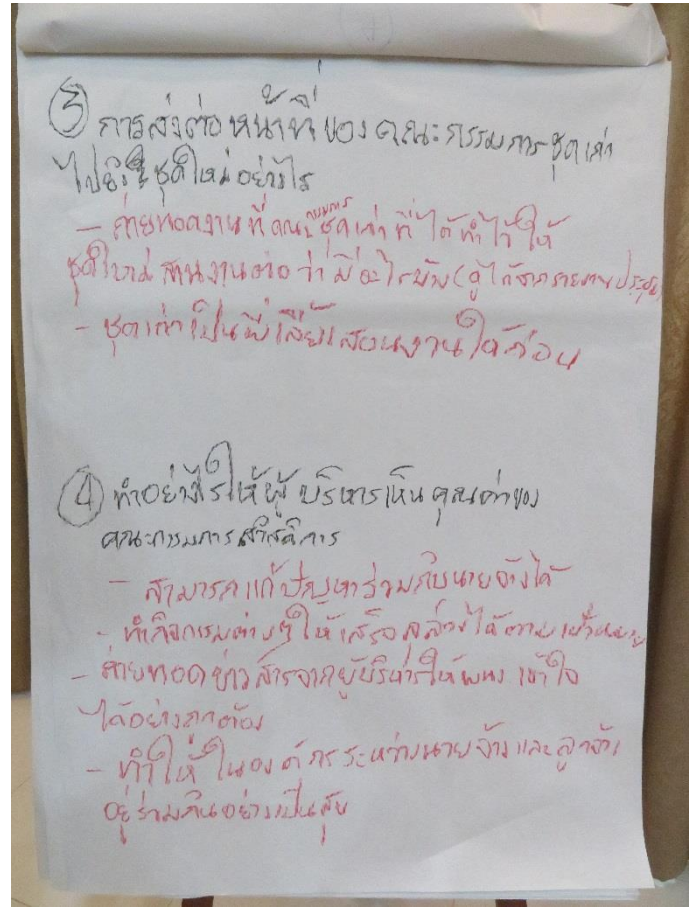 ③ การส่งต่อหน้าที่ของคณะกรรมการชุดเก่า
ไปยังชุดใหม่อย่างไร
- ถ่ายทอดงานที่คณะกรรมการชุดเก่าที่ได้ทำไว้ให้
ชุดใหม่สานงานต่อว่ามีอะไรบ้าง (ดูได้จากรายงานประชุม)
- ชุดเก่าเป็นพี่เลี้ยงสอนงานให้ก่อน
④ ทำอย่างไรให้ผู้บริหารเห็นคุณค่าของ
คณะกรรมการสวัสดิการ
- สามารถแก้ปัญหาร่วมกับนายจ้างได้
- ทำกิจกรรมต่างๆให้เสร็จลุล่วงได้ตามเป้าหมาย
- ถ่ายทอดข่าวสารจากผู้บริหารให้พนง เข้าใจ
ได้อย่างถูกต้อง
- ทำให้ในองค์กรระหว่างนายจ้างและลูกจ้าง
อยู่ร่วมกันอย่างเป็นสุข